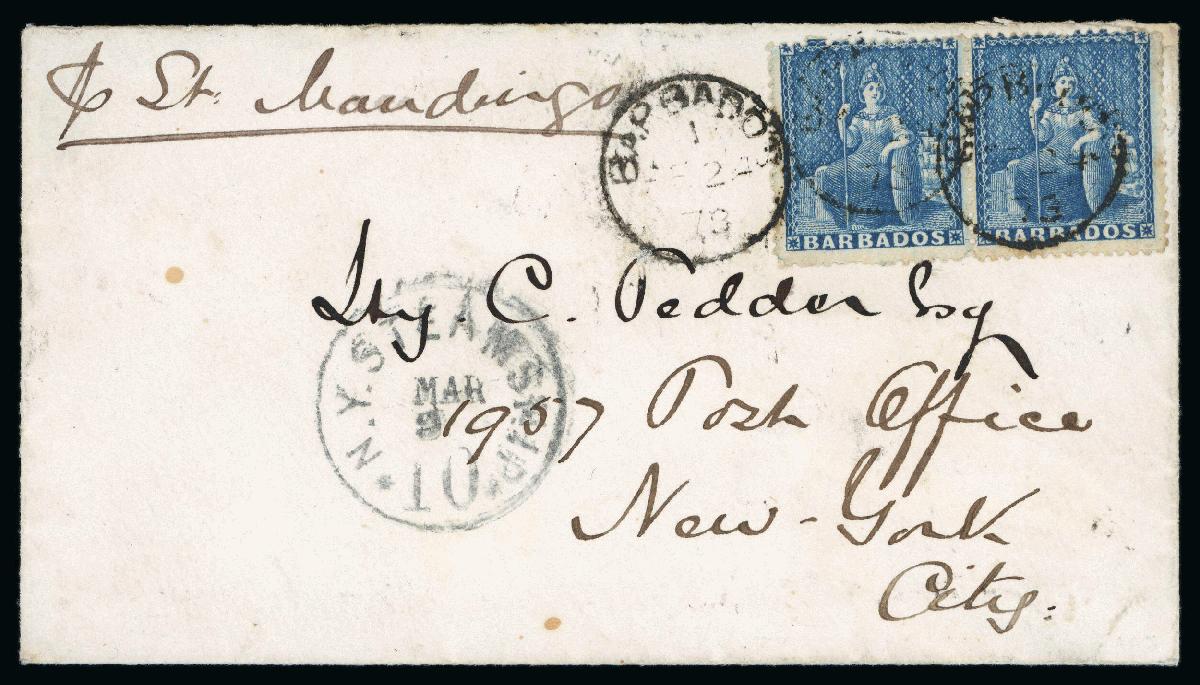 p St. Mandingo
BARBADOS
24
73
BARBADOS
BARBADOS
BARBADOS
73
Hy. C. Pedder Esq
N.Y. STEAMSHIP
MAR
9
10
1957 Post Office
New-York
City.